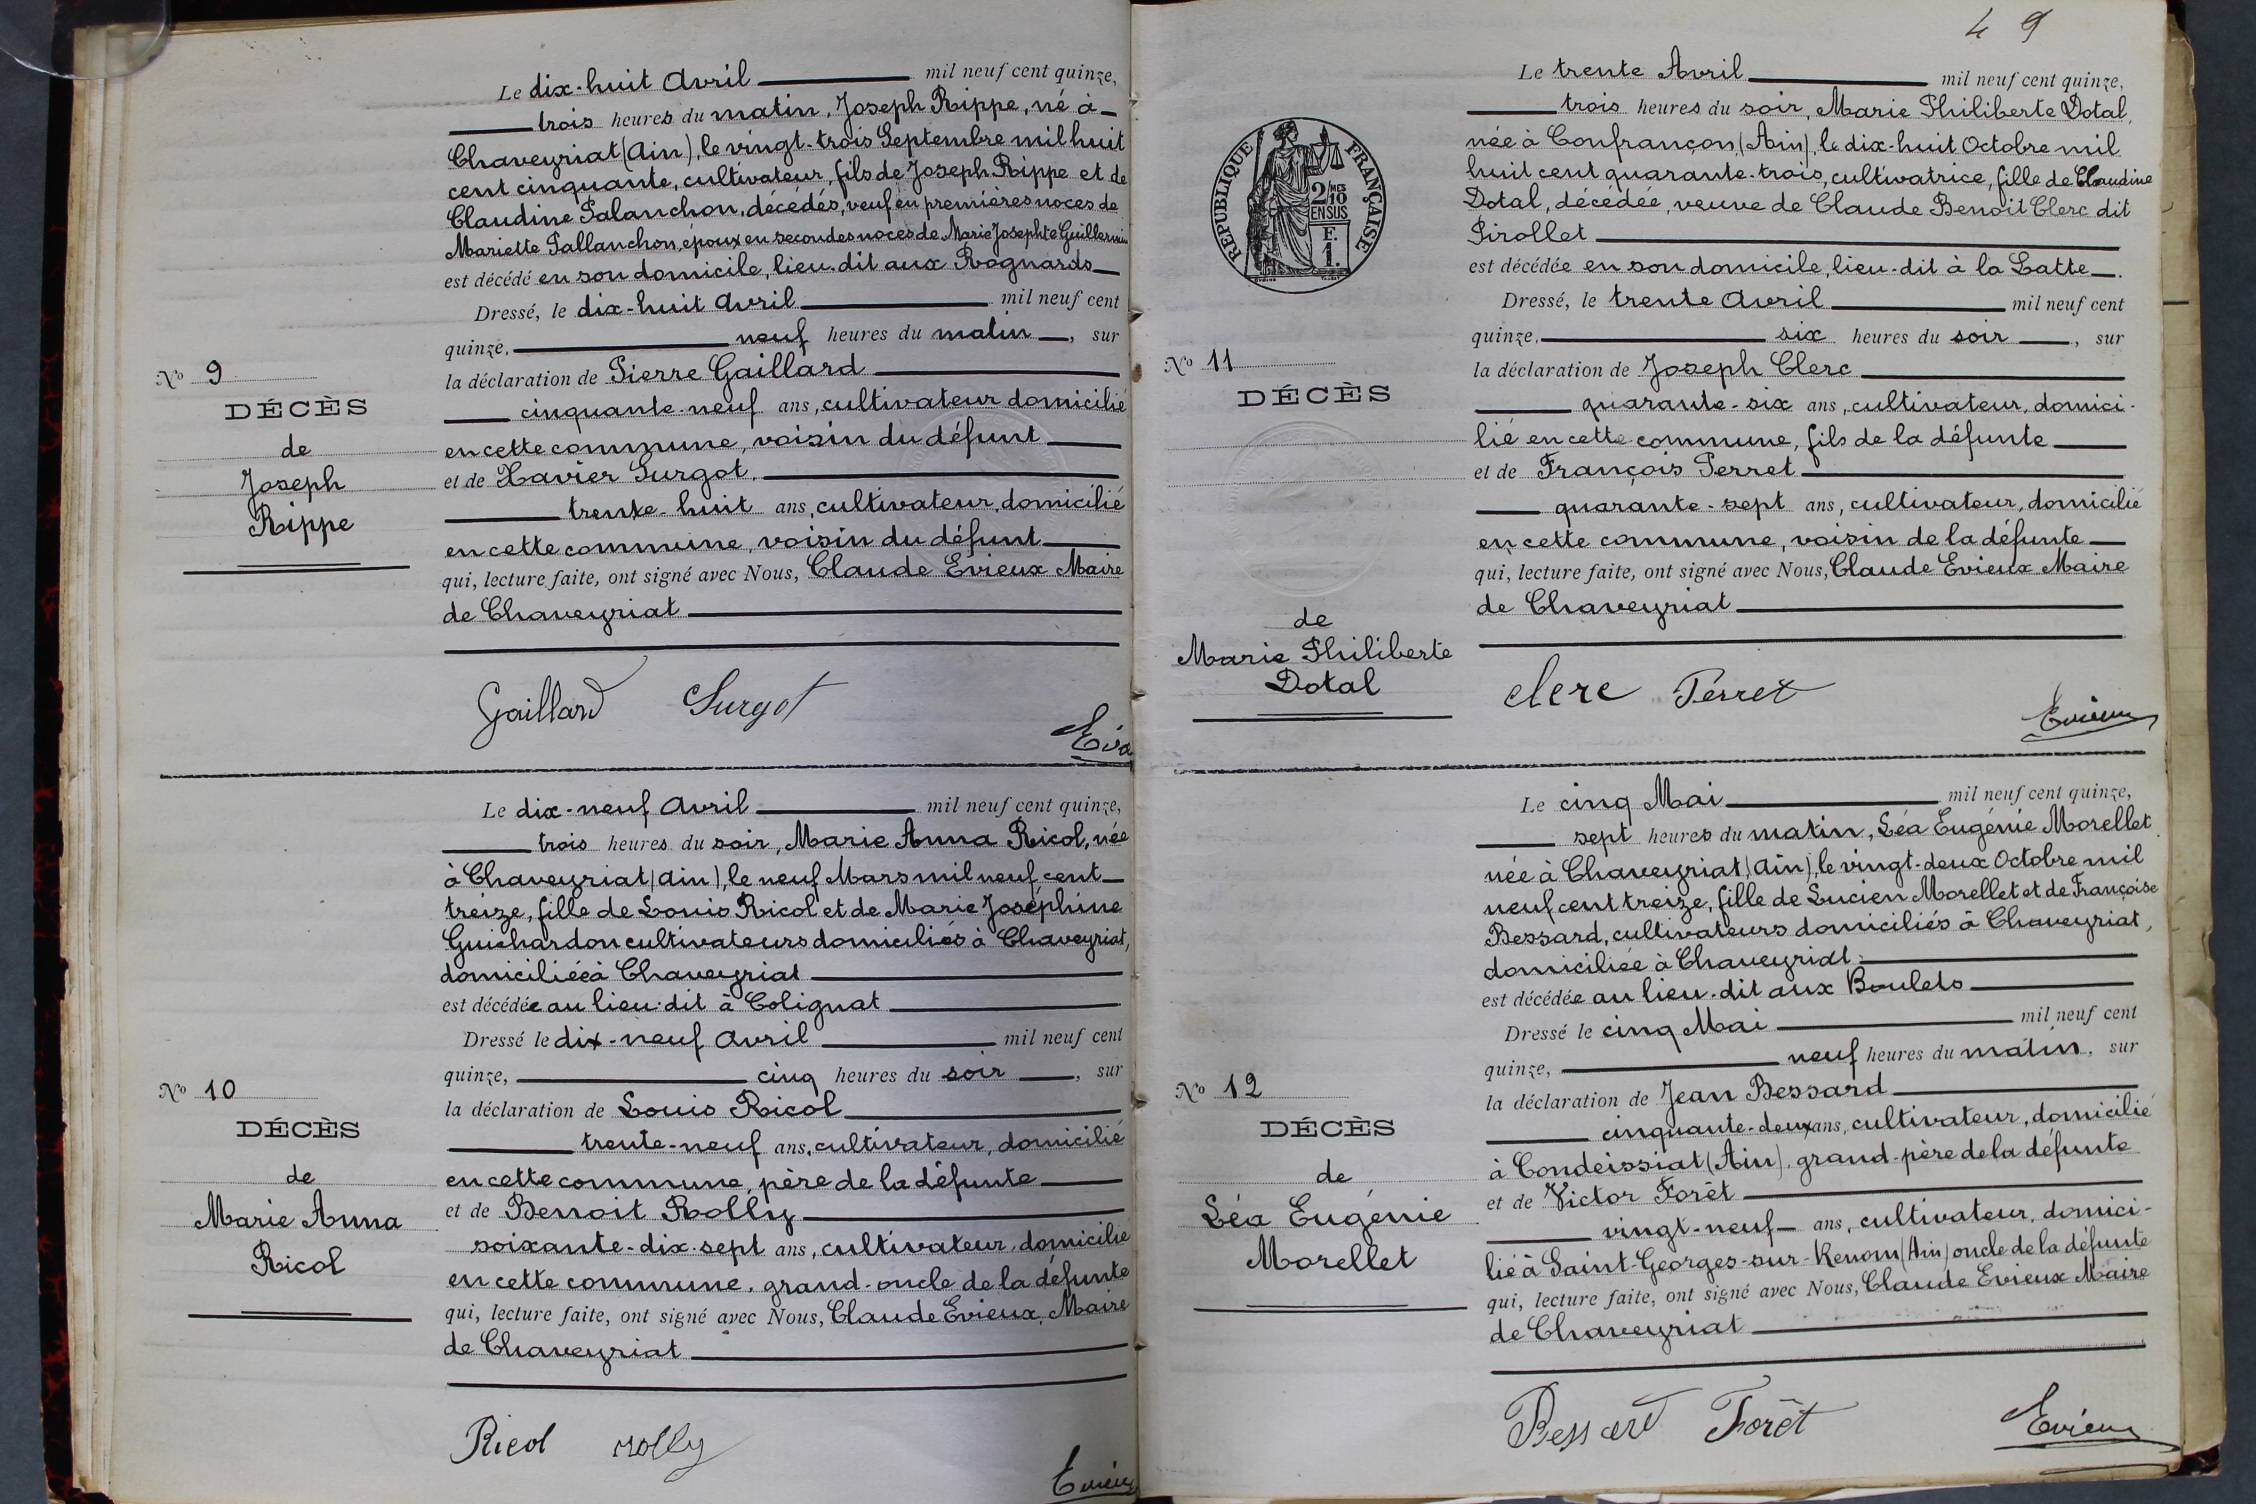 Le dix-huit Avril mil neuf cent quinze,
trois heures du matin, Joseph Rippe, né à
Chaveyriat (Ain), le vingt-trois Septembre mil huit
cent cinquante, cultivateur, fils de Joseph Rippe et de
Claudine Palanchon, décédés, veuf en premières noces de
Mariette Pallanchon, époux en secondes noces de Marie Josephte Guillermin
est décédé en son domicile, lieu-dit aux Rognards
Dressé, le dix-huit Avril mil neuf cent
quinze, neuf heures du matin, sur
No 9
la déclaration de Pierre Gaillard
DÉCÈS
cinquante-neuf ans, cultivateur domicilié
de
en cette commune, voisin du défunt
Joseph
et de Xavier Surgot,
Rippe
trente-huit ans, cultivateur, domicilié
en cette commune, voisin du défunt
qui, lecture faite, ont signé avec Nous, Claude Evieux Maire
de Chaveyriat
Gaillard Surgot
Le dix-neuf Avril mil neuf cent quinze,
trois heures du soir, Marie Anna Ricol, née
à Chaveyriat (Ain), le neuf Mars mil neuf cent
treize, fille de Louis Ricol et de Marie Joséphine
Guichardon cultivateurs domiciliés à Chaveyriat,
domiciliée à Chaveyriat
est décédée au lieu-dit à Colignat
Dressé le dix-neuf Avril mil neuf cent
quinze, cinq heures du soir, sur
No 10
la déclaration de Louis Ricol
DÉCÈS
trente-neuf ans, cultivateur, domicilié
de
en cette commune, père de la défunte
Marie Anna
et de Benoit Rolly
Ricol
soixante-dix-sept ans, cultivateur, domicilié
en cette commune, grand-oncle de la défunte
qui, lecture faite, ont signé avec Nous, Claude Evieux, Maire
de Chaveyriat
Ricol Rolly
Evieux
49
Le trente Avril mil neuf cent quinze,
trois heures du soir, Marie Philiberte Dotal,
née à Confrançon (Ain), le dix-huit Octobre mil
huit cent quarante-trois, cultivatrice, fille de Claudine
Dotal, décédée, veuve de Claude Benoit Clerc dit
Pirollet
est décédée en son domicile, lieu-dit à la Latte
RÉPUBLIQUE FRANÇAISE
2/10 MES
EN SUS
F.
1.
Dressé, le trente Avril mil neuf cent
quinze, six heures du soir, sur
No 11
la déclaration de Joseph Clerc
DÉCÈS
quarante-six ans, cultivateur, domici-
lié en cette commune, fils de la défunte
et de François Perret
quarante-sept ans, cultivateur, domicilié
en cette commune, voisin de la défunte
qui, lecture faite, ont signé avec Nous, Claude Evieux Maire
de Chaveyriat
de
Marie Philiberte
Dotal
Clerc Perret
Evieux
Le cinq Mai mil neuf cent quinze,
sept heures du matin, Léa Eugénie Morellet
née à Chaveyriat (Ain), le vingt-deux Octobre mil
neuf cent treize, fille de Lucien Morellet et de Françoise
Bessard, cultivateurs domiciliés à Chaveyriat,
domiciliée à Chaveyriat
est décédée au lieu-dit aux Boulets
Dressé le cinq Mai mil neuf cent
quinze, neuf heures du matin, sur
No 12
la déclaration de Jean Bessard
DÉCÈS
cinquante-deux ans, cultivateur, domicilié
de
à Condeissiat (Ain), grand-père de la défunte
Léa Eugénie
et de Victor Forêt
Morellet
vingt-neuf ans, cultivateur, domici-
lié à Saint-Georges-sur-Renom (Ain) oncle de la défunte
qui, lecture faite, ont signé avec Nous, Claude Evieux Maire
de Chaveyriat
Bessard Forêt
Evieux